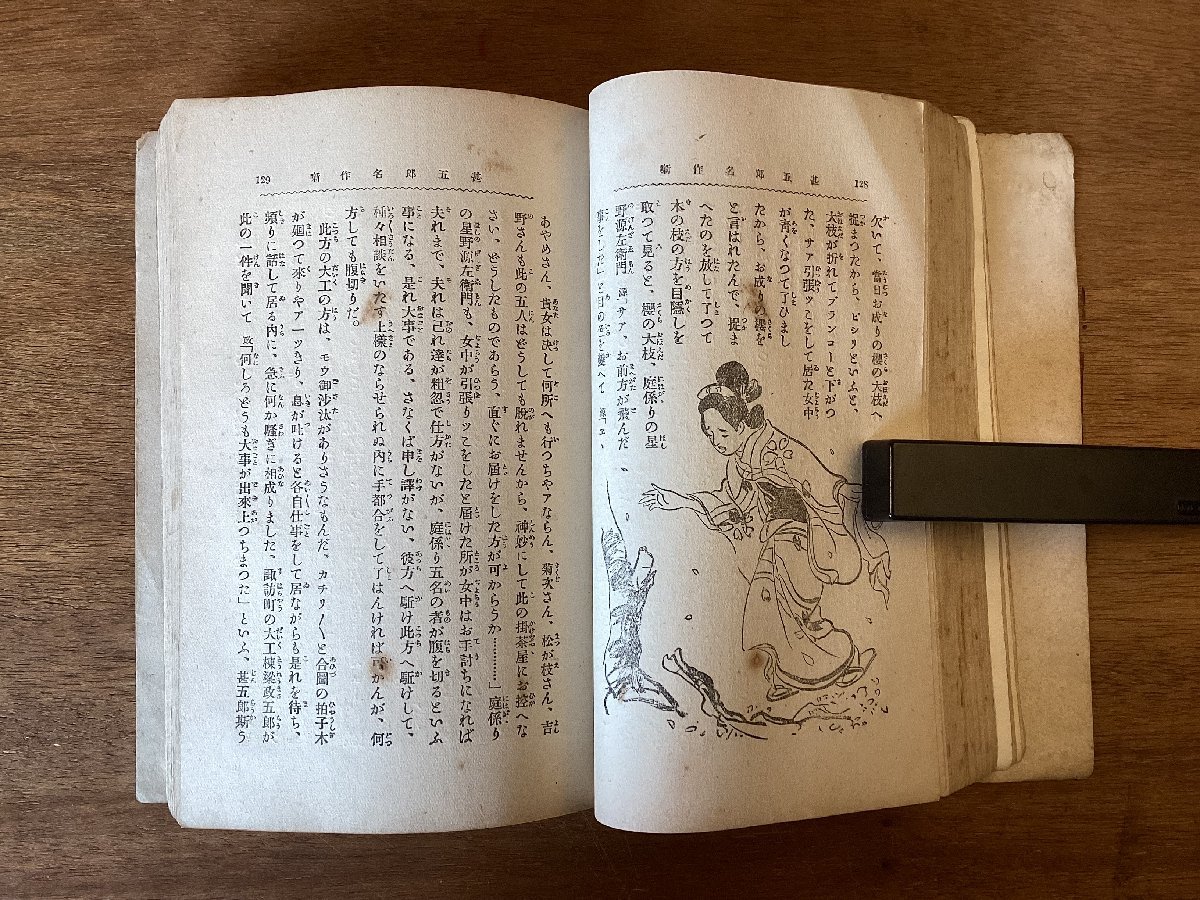 128 甚五郎名作噺
欠いて、當日お成りの櫻の大枝へ
捉まつたから、ピシリといふと、
大枝が折れてブランコーと下がつ
た、サァ引張ツこをして居た女中
が靑くなつて了ひまし
たから、お成りの櫻を
と言はれたんで、捉ま
へたのを放して了つて
木の枝の方を目隱しを
取つて見ると、櫻の大枝、庭係りの星
野源左衞門 源「サア、お前方が飛んだ
甚五郎名作噺 129
あやめさん、貴女は決して何所へも行つちやアならん、菊次さん、松が枝さん、吉
野さんも此の五人はどうしても脫れませんから、神妙にして此の掛茶屋にお控へな
さい、どうしたものであらう、直ぐにお屆けをした方が可からうか…………」庭係り
の星野源左衞門も、女中が引張りツこをしたと屆けた所が女中はお手討ちになれば
夫れまで、夫れは己れ達が粗忽で仕方がないが、庭係り五名の者が腹を切るといふ
事になる、是れ大事である、さなくば申し譯がない、彼方へ駈け此方へ駈けして、
種々相談をいたす上樣のならせられぬ内に手都合をして了はんければ かんが、何
方しても腹切りだ。
此方の大工の方は、モウ御沙汰がありさうなもんだ、カチリ〳〵と合圖の拍子木
が廻つて來りやア一ツきり、息が吐けると各自仕事をして居ながらも是れを待ち、
頻りに話して居る内に、急に何か騷ぎに相成りました、諏訪町の大工棟梁政五郎が
此の一件を聞いて 政「何しろどうも大事が出來上つちまつた」といふ、甚五郎斯う